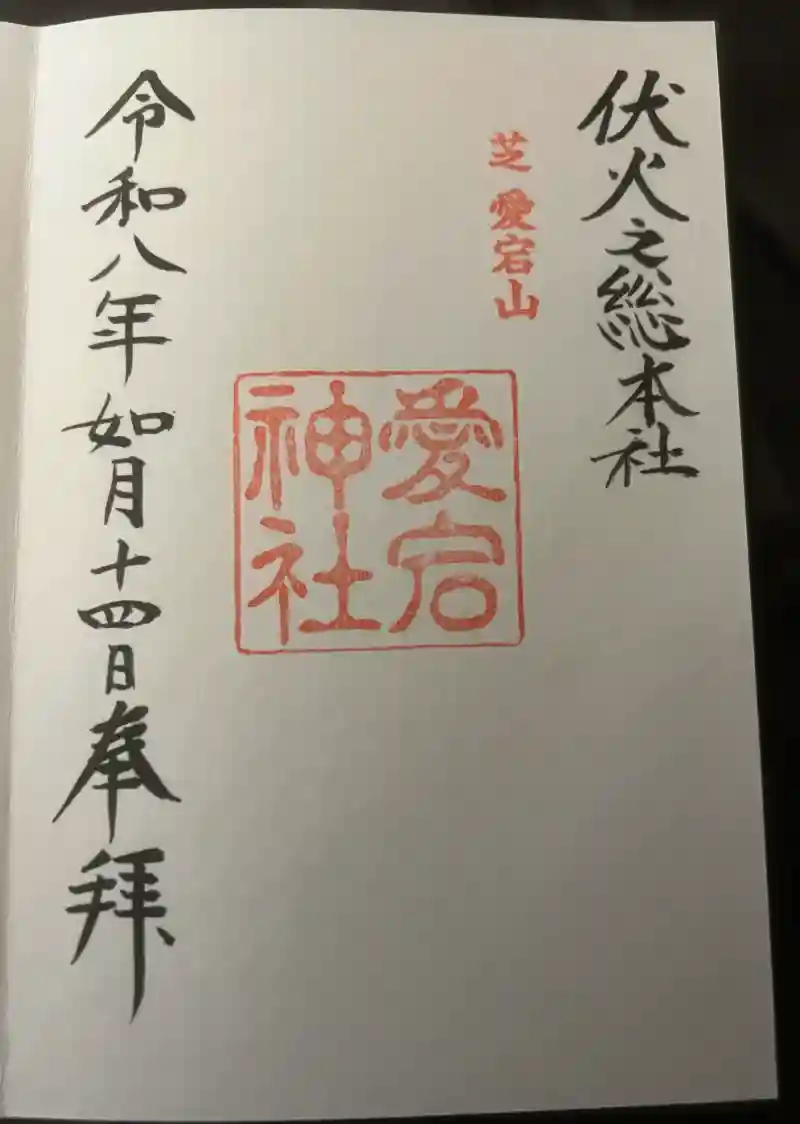 伏火之総本社
芝 愛宕山
愛宕
神社
令和八年如月十四日奉拝